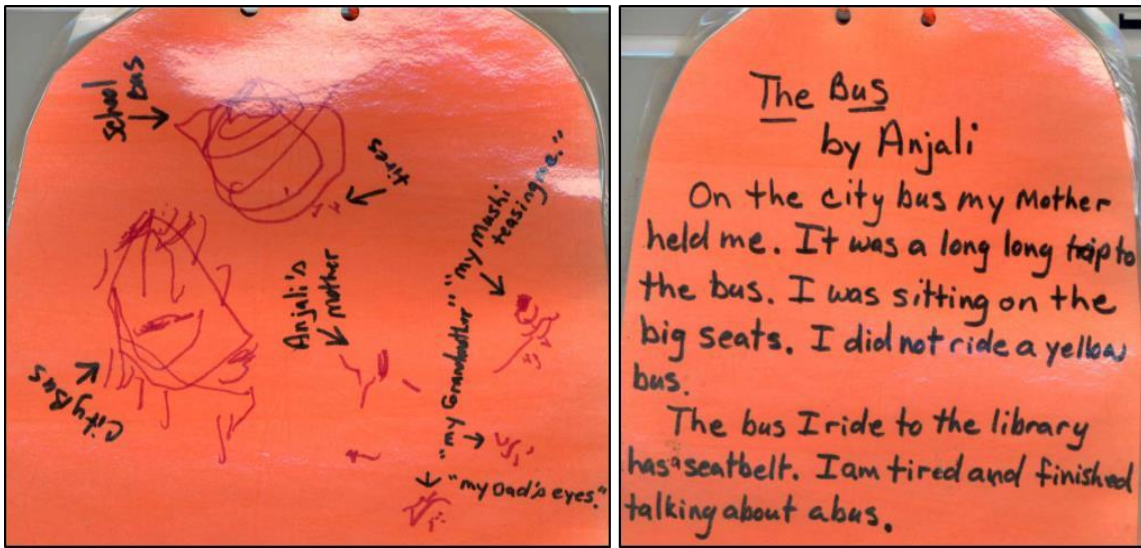 School
Bus
tires
City Bus
Anjali's
Mother
"my Mushi
teasing me."
"my Grandmother"
"my Dad's eyes."
The Bus
by Anjali
On the city bus my Mother
held me. It was a long long trip to
the bus. I was sitting on the
big seats. I did not ride a yellow
bus.
The bus I ride to the library
has a seatbelt. I am tired and finished
talking about a bus.